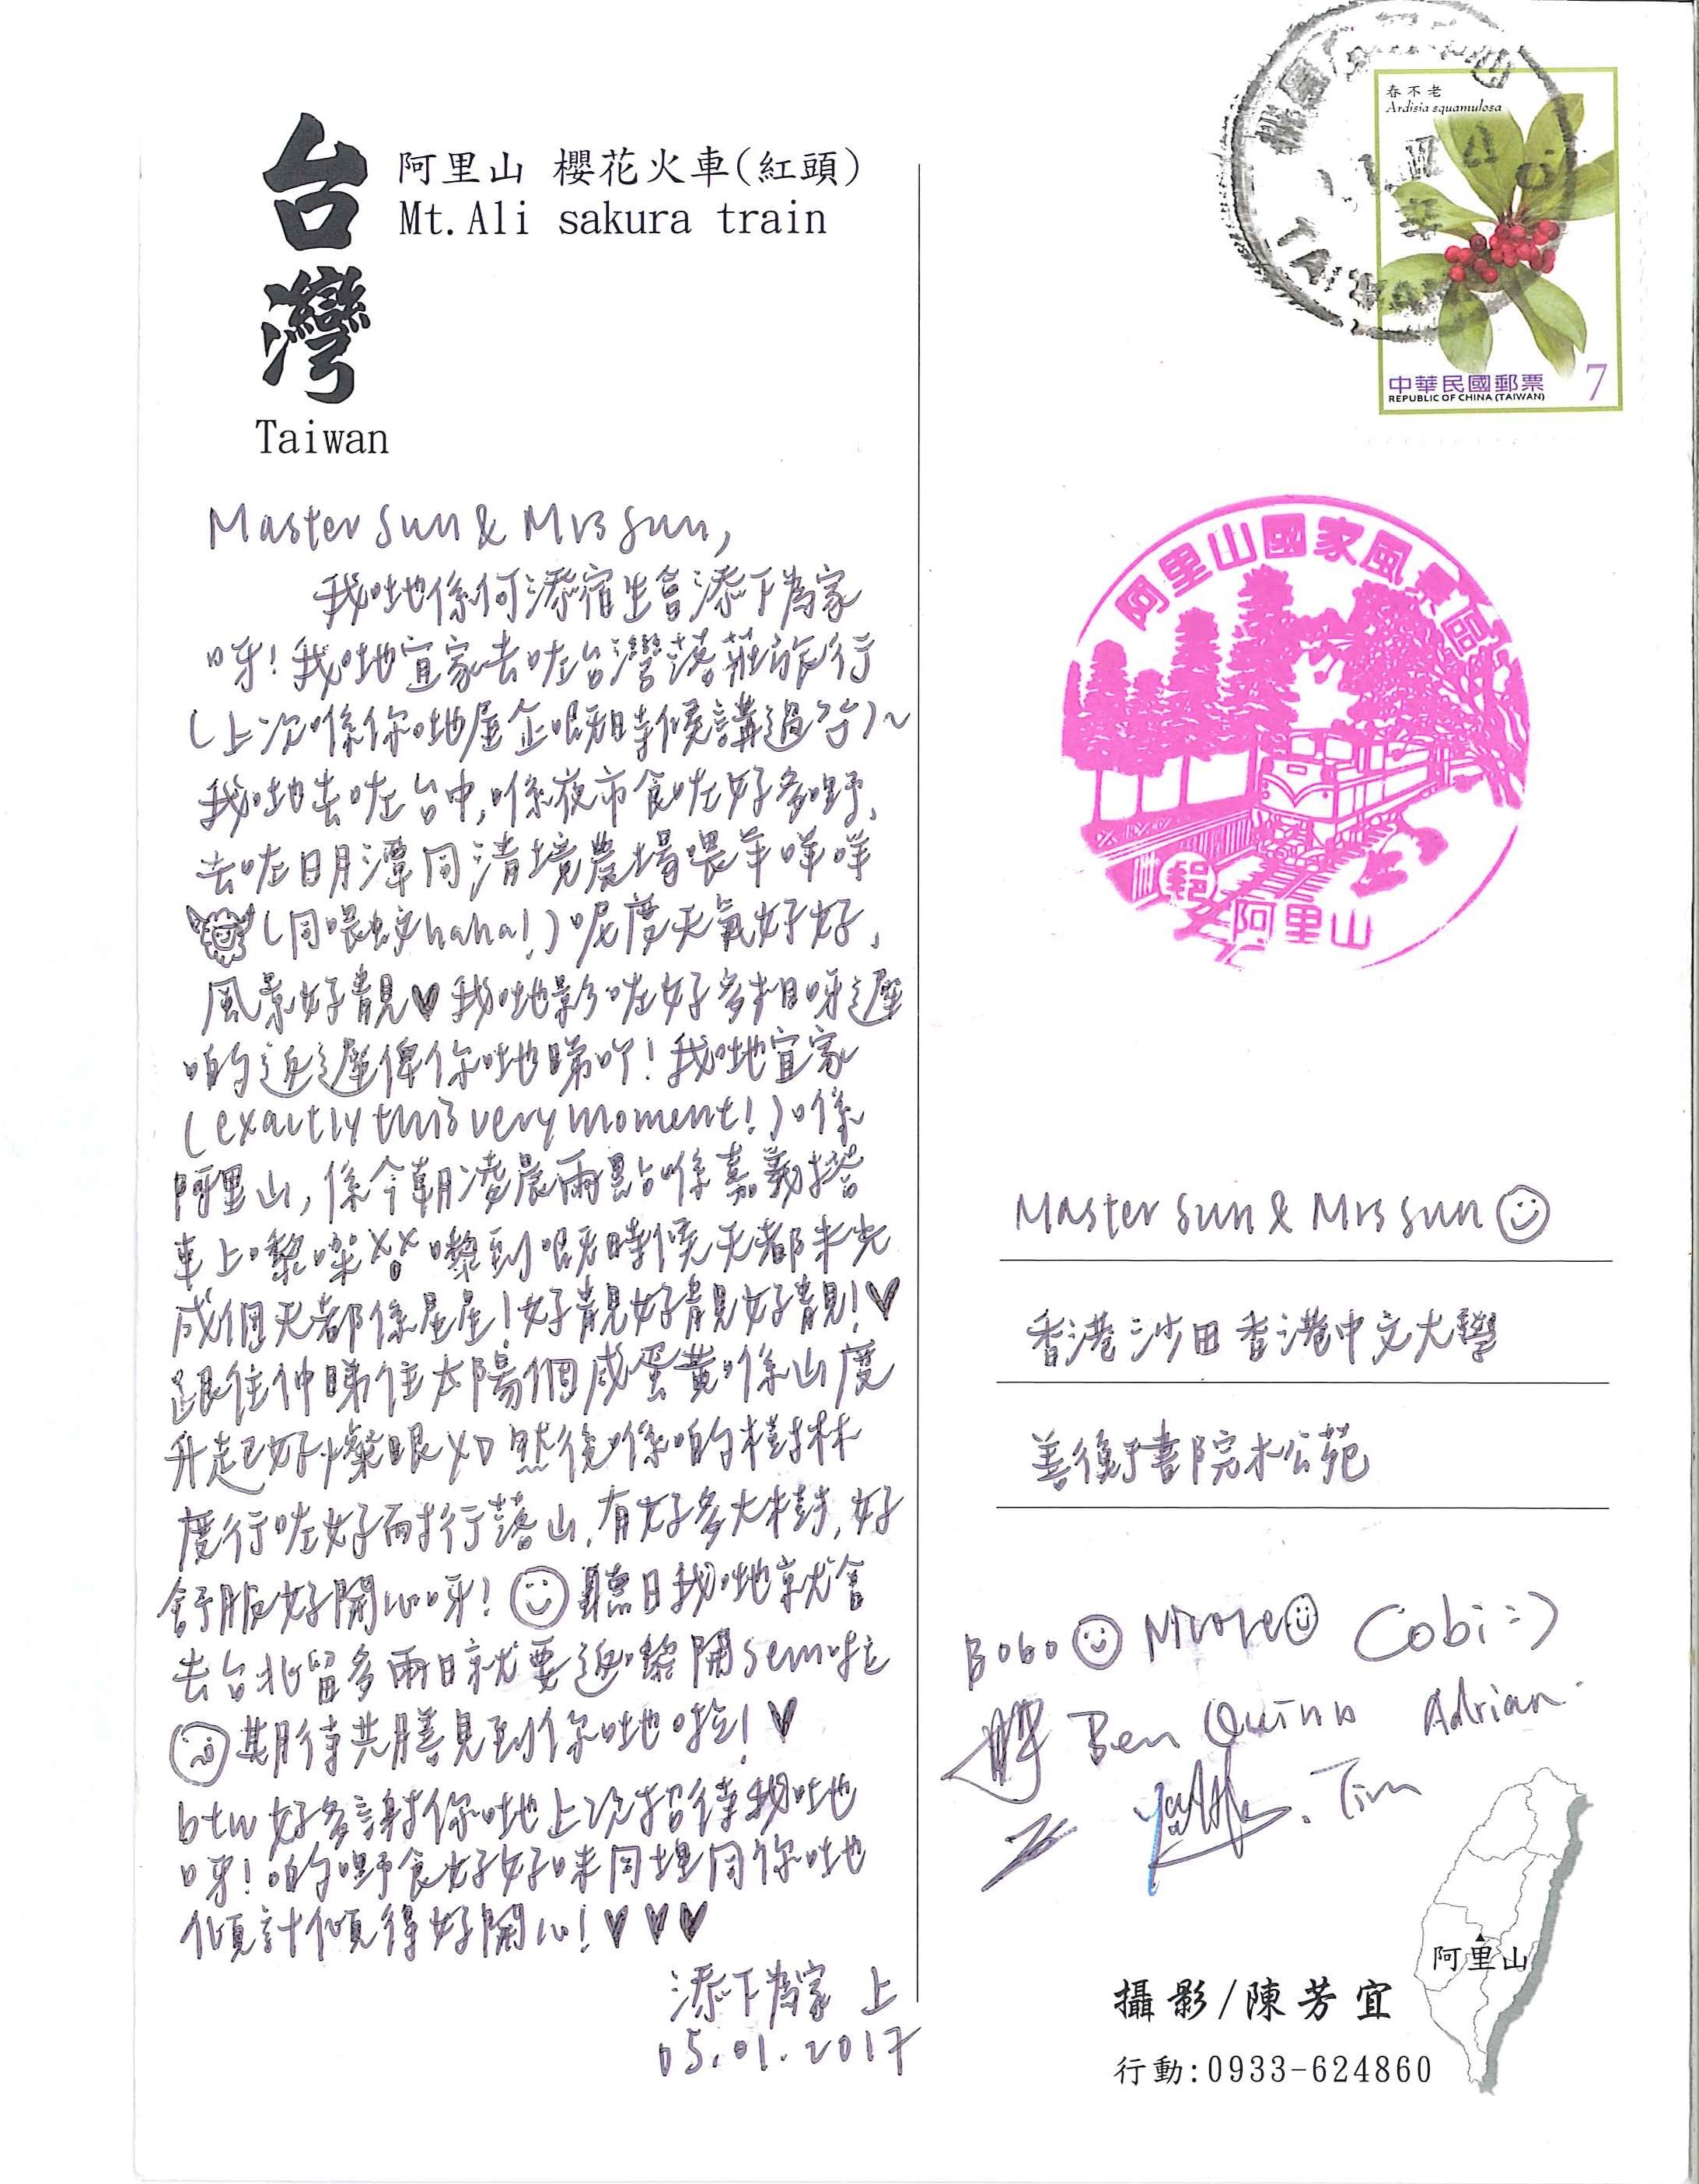 台灣
Taiwan
阿里山 櫻花火車(紅頭)
Mt.Ali sakura train
Master Sun & Mrs Sun,
我哋係何添宿生會添下為家
呀!我哋宜家去咗台灣落莊旅行
(上次喺你哋屋企嗰時候講過)~
我哋去咗台中,喺夜市食咗好多嘢,
去咗日月潭同清境農場喂羊咩咩
(同喂蚊haha!)呢度天氣好好,
風景好靚♥我哋影咗好多相呀遲
啲返遲俾你哋睇吖!我哋宜家
(exactly this very moment!)喺
阿里山,係今朝凌晨兩點喺嘉義搭
車上嚟㗎 嚟到嗰時候天都未光
成個天都係星星!好靚好靚好靚!♥
跟住仲睇住太陽個咸蛋黃喺山度
升起已好𢥧眼XD 然後喺啲樹林
度行咗好耐行落山,有好多大樹,好
舒服好開心呀!☺聽日我哋就會
去台北留多兩日就要返嚟開sem啦
期待共膳見到你哋啦!♥
btw好多謝你哋上次招待我哋
呀!啲嘢食好好味同埋同你哋
傾計傾得好開心!♥♥♥
添下為家 上
05.01.2017
春不老
Ardisia squamulosa
中華民國郵票 7
REPUBLIC OF CHINA (TAIWAN)
阿里山國家風景區
郵
阿里山
Master Sun & Mrs Sun ☺
香港沙田香港中文大學
善衡書院木公苑
Bobo ☺ Nicole ☺ Cobi :)
Ben Quinn Adrian
Tim
阿里山
攝影/陳芳宜
行動:0933-624860